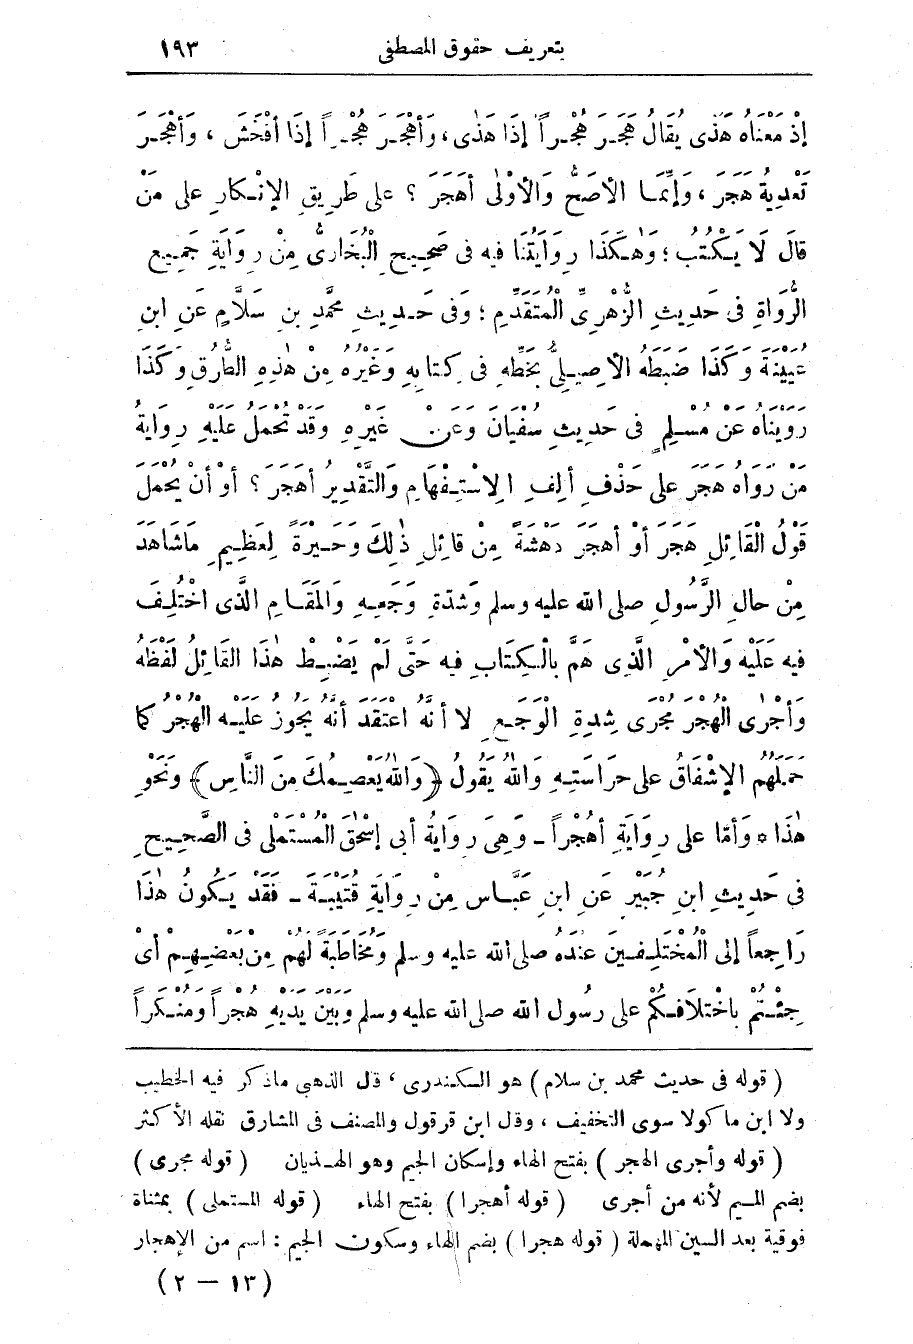 بتعريف حقوق المصطفى ١٩٣
إِذْ مَعْنَاهُ هَذَى يُقَالُ هَجَرَ هُجْراً إِذَا هَذَى، وَأَهْجَرَ هُجْراً إِذَا أَفْحَشَ ، وَأَهْجَرَ
تَعْدِيَةُ هَجَرَ ، وَإِنَّمَا الأَصَحُّ وَالأَوْلَى أَهَجَرَ ؟ على طَرِيقِ الإِنْكَارِ على مَنْ
قالَ لَا يَكْتُبُ ؛ وَهَكَذَا رِوَايَتُنَا فيه فى صَحِيحِ الْبُخَارِىِّ مِنْ رِوَايَةِ جَمِيعِ
الرُّوَاةِ فى حَدِيثِ الزُّهْرِىِّ الْمُتَقَدِّمِ ؛ وَفى حَدِيثِ محمَّدِ بنِ سَلَّامٍ عَنِ ابنِ
عُيَيْنَةَ وَكَذَا ضَبَطَهُ الأَصِيلِىُّ بِخَطِّهِ فى كِتابِهِ وَغَيْرُهُ مِنْ هٰذِهِ الطُّرُقِ وَكَذَا
رَوَيْنَاهُ عَنْ مُسْلِمٍ فى حَدِيثِ سُفْيَانَ وَعَنْ غَيْرِهِ وَقَدْ تُحْمَلُ عَلَيْهِ رِوَايَةُ
مَنْ رَوَاهُ هَجَرَ على حَذْفِ أَلِفِ الِاسْتِفْهَامِ وَالتَّقْدِيرُ أَهَجَرَ ؟ أَوْ أَنْ يُحْمَلَ
قَوْلُ الْقَائِلِ هَجَرَ أَوْ أَهْجَرَ دَهْشَةً مِنْ قائِلِ ذٰلِكَ وَحَيْرَةً لِعَظِيمِ مَاشَاهَدَ
مِنْ حالِ الرَّسُولِ صلى الله عليه وسلم وَشِدَّةِ وَجَعِهِ وَالمَقَامِ الَّذى اخْتُلِفَ
فيه عَلَيْهِ وَالأَمْرِ الَّذِى هَمَّ بالْكِتَابِ فيه حَتَّى لَمْ يَضْبِطْ هٰذَا القَائِلُ لَفْظَهُ
وَأَجْرَى الْهُجْرَ مُجْرَى شِدَّةِ الْوَجَعِ لا أَنَّهُ اعْتَقَدَ أَنَّهُ يَجُوزُ عليه الْهُجْرُ كما
حَمَلَهُمُ الإِشْفَاقُ على حِرَاسَتِهِ وَاللهُ يَقُولُ (وَاللهُ يَعْصِمُكَ مِنَ النَّاسِ) وَنَحْوِ
هٰذَا * وَأمَّا على رِوَايَةِ أَهُجْراً - وَهِىَ رِوَايَةُ أَبى إِسْحٰقَ الْمُسْتَمْلِى فى الصَّحِيحِ
فى حَدِيثِ ابنِ جُبَيْرٍ عَنِ ابنِ عَبَّاس مِنْ رِوَايَةِ قُتَيْبَةَ - فَقَدْ يَكُونُ هٰذَا
رَاجِعاً إِلَى الْمُخْتَلِفِينَ عِنْدَهُ صلى الله عليه وسلم وَمُخَاطَبَةً لَهُمْ مِنْ بَعْضِهِمْ أَىْ
جِئْتُمْ بِاخْتِلَافِكُمْ على رسُولِ الله صلى الله عليه وسلم وَبَيْنَ يَدَيْهِ هُجْراً وَمُنْكَراً
( قوله فى حديث محمد بن سلام ) هو السكندرى ، قال الذهبى ماذكر فيه الخطيب
ولا ابن ماكولا سوى التخفيف ، وقال ابن قرقول والمصنف فى المشارق نقله الأكثر
( قوله وأجرى الهجر ) بفتح الهاء وإسكان الجيم وهو الهذيان ( قوله مجرى )
بضم الميم لأنه من أجرى ( قوله أهجرا ) بفتح الهاء ( قوله المستملى ) بمثناة
فوقية بعد السين المهملة ( قوله هجرا ) بضم الهاء وسكون الجيم : اسم من الإهجار
( ١٣ - ٢ )